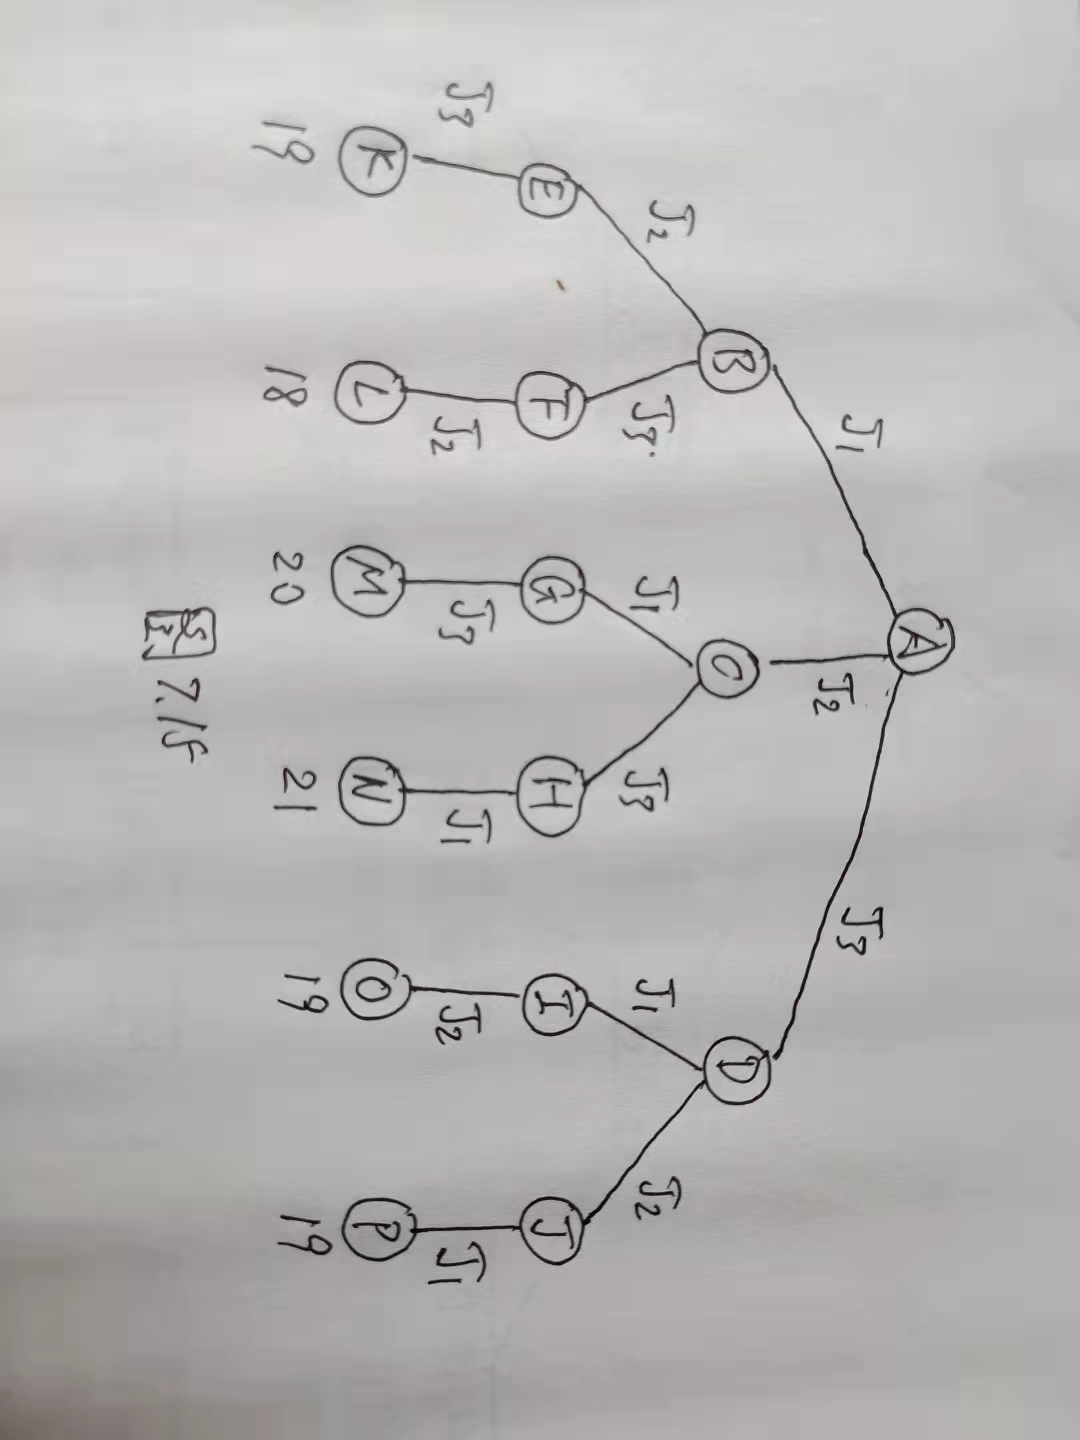 A
J1 J2 J3
B C D
J2 J3 J1 J3 J1 J2
E F G H I J
J3 J2 J3 J1 J2 J1
K L M N O P
19 18 20 21 19 19
图 7.15